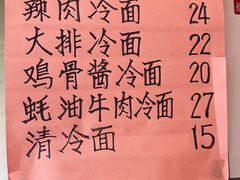 辣肉冷面 24
大排冷面 22
鸡骨酱冷面 20
蚝油牛肉冷面 27
清冷面 15